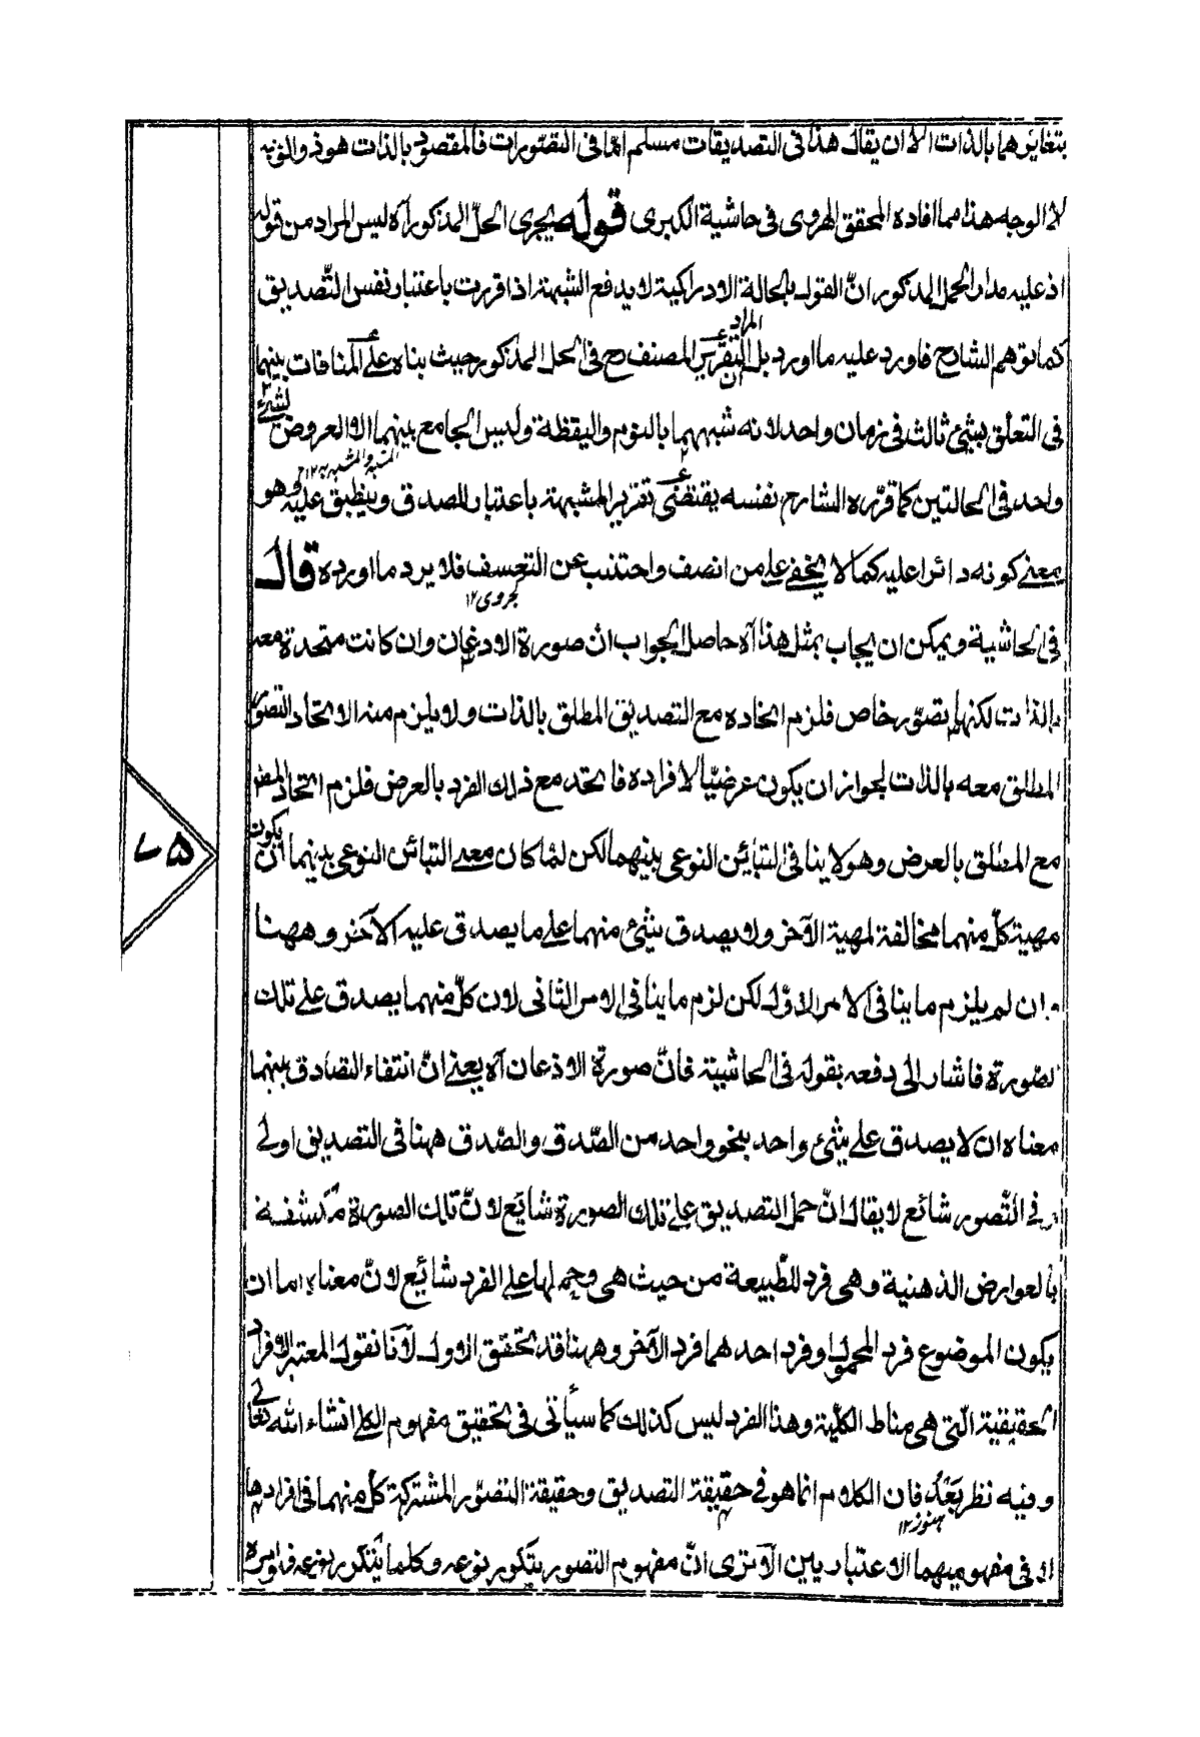 بتغايرهما بالذات الا ان يقال هذا فى التصديقات مسلم امّا فى التصّورات فالمقصود بالذات هو ذو الوجه
لا الوجه هذا مما افاده المحقق الهروى فى حاشية الكبرى قوله يجرى الحلّ المذكور آه ليس المراد من قوله
اذ عليه مدار الحمل المذكور انّ القول بالحالة الادراكية لا يدفع الشبهة اذا قررت باعتبار نفس التّصديق
المراد
كما توهم الشارح فاورد عليه ما اورد بل ان التقرير المصنف رح فى الحل المذكور حيث بناه على المنافات بينهما
فى التعلّق بشئ ثالث فى زمان واحد لانه شبههما بالنوم واليقظة وليس الجامع بينهما الا العروض لشئ
المشبه والمشبه به ١٢
واحد فى الحالتين كما قرّره الشارح نفسه يقتضى تقرير الشبهة باعتبار المصدق وينطبق عليه وهو
معنى كونه دائرا عليه كما لا يخفى على من انصف واجتنب عن التعسف فلا يرد ما اورده قال
١٢
فى الحاشية ويمكن ان يجاب بمثل هذا آه حاصل الجواب ان صورة الاذعان وان كانت متحدة معه
بالذات لكنها تصوّر خاص فلزم اتحاده مع التصديق المطلق بالذات ولا يلزم منه الاتحاد التصوّر
المطلق معه بالذات لجواز ان يكون عرضيّا لافراده فاتحد مع ذلك الفرد بالعرض فلزم اتحاد
مع المطلق بالعرض وهو لا ينافى التبّاين النوعى بينهما لكن لمّا كان معنى التبائن النوعى بينهما ان يكون
٧٥
مهية كلّ منهما مخالفة لمهية الآخر ولا يصدق شئ منهما على ما يصدق عليه الآخر وههنا
وان لم يلزم ما ينافى الامر الاوّل لكن لزم ما ينافى الامر الثانى لان كلّ منهما يصدق على تلك
الصّورة فاشار الى دفعه بقوله فى الحاشية فانّ صورة الاذعان آه يعنى انّ انتفاء التصادق بينهما
معناه ان لا يصدق على شئ واحد بنحو واحد من الصّدق والصّدق ههنا فى التصديق اولى
و فى التّصور شائع لا يقال انّ حمل التصديق على تلك الصورة شائع لانّ تلك الصورة مكتنفة
بالعوارض الذهنية وهى فرد للطّبيعة من حيث هى وحملها على الفرد شائع لانّ معناه اما ان
يكون الموضوع فرد المحمول او فرد احدهما فرد الآخر وههنا قد تحقق الاول لأنّا نقول المعتبر الافراد
الحقيقية الّتى هى مناط الكلّية وهذا الفرد ليس كذلك كما سيأتى فى تحقيق مفهوم الكلى انشاء الله تعالى
وفيه نظر بَعْدُ فان الكلام انما هو فى حقيقة التصديق وحقيقة التصّور المشتركة كلّ منهما فى افرادها
هنوز ١٢
لا فى مفهوميهما الاعتباريين الا ترى انّ مفهوم التصور يتكرر نوعه وكلما يتكرر نوعه